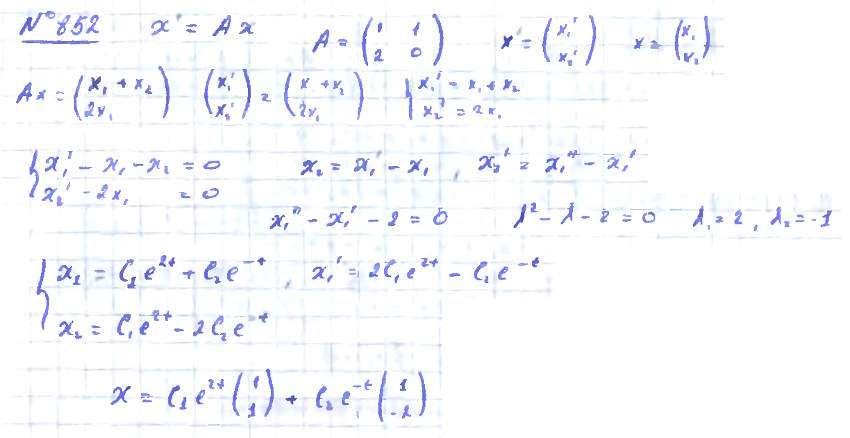 №852 x' = Ax A = (1 1 / 2 0) x' = (x₁' / x₂') x = (x₁ / x₂)
Ax = (x₁ + x₂ / 2x₁) (x₁' / x₂') = (x + x₂ / 2x₁) { x₁' = x₁ + x₂ / x₂' = 2x₁
{ x₁' - x₁ - x₂ = 0 / x₂' - 2x₁ = 0 x₂ = x₁' - x₁, x₂' = x₁'' - x₁'
x₁'' - x₁' - 2 = 0 λ² - λ - 2 = 0 λ₁ = 2, λ₂ = -1
{ x₁ = C₁e^{2t} + C₂e^{-t}, x₁' = 2C₁e^{2t} - C₂e^{-t}
x₂ = C₁e^{2t} - 2C₂e^{-t}
x = C₁e^{2t} (1 / 1) + C₂e^{-t} (1 / -2)